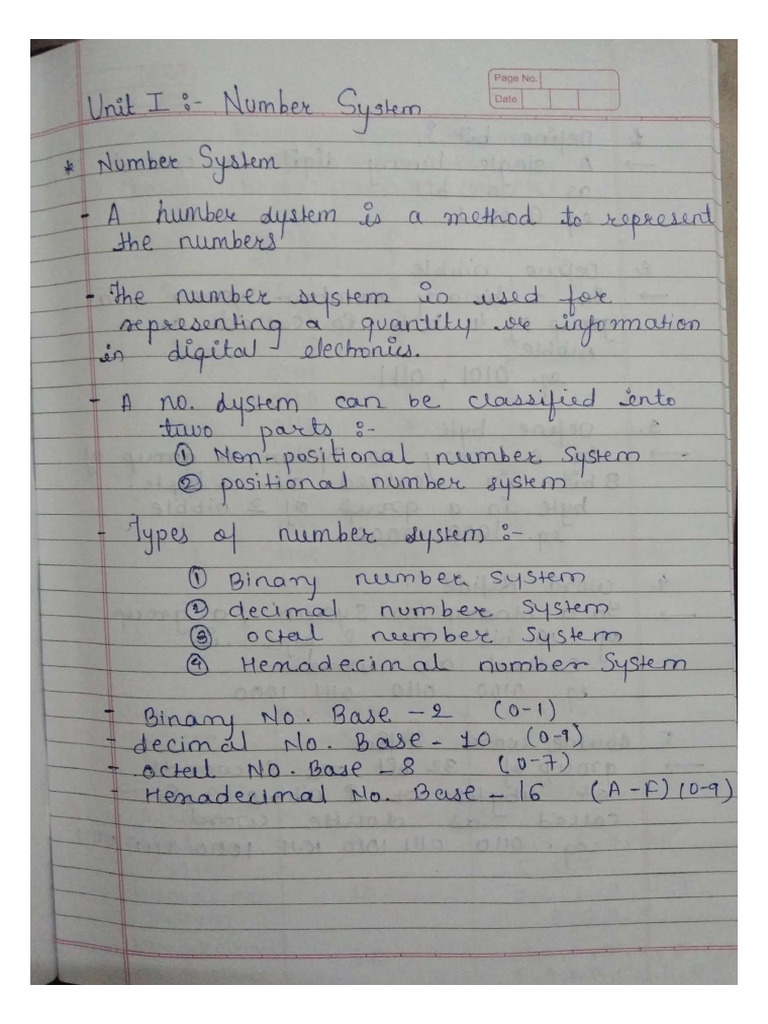 Page No.
Date
Unit I :- Number System
* Number System
- A number system is a method to represent
the numbers
- The number system is used for
representing a quantity or information
in digital electronics.
- A no. system can be classified into
two parts :-
① Non-positional number System
② positional number system
- Types of number system :-
① Binary number System
② decimal number System
③ octal number System
④ Hexadecimal number System
- Binary No. Base - 2 (0-1)
- decimal No. Base - 10 (0-9)
- octal No. Base - 8 (0-7)
- Hexadecimal No. Base - 16 (A-F) (0-9)